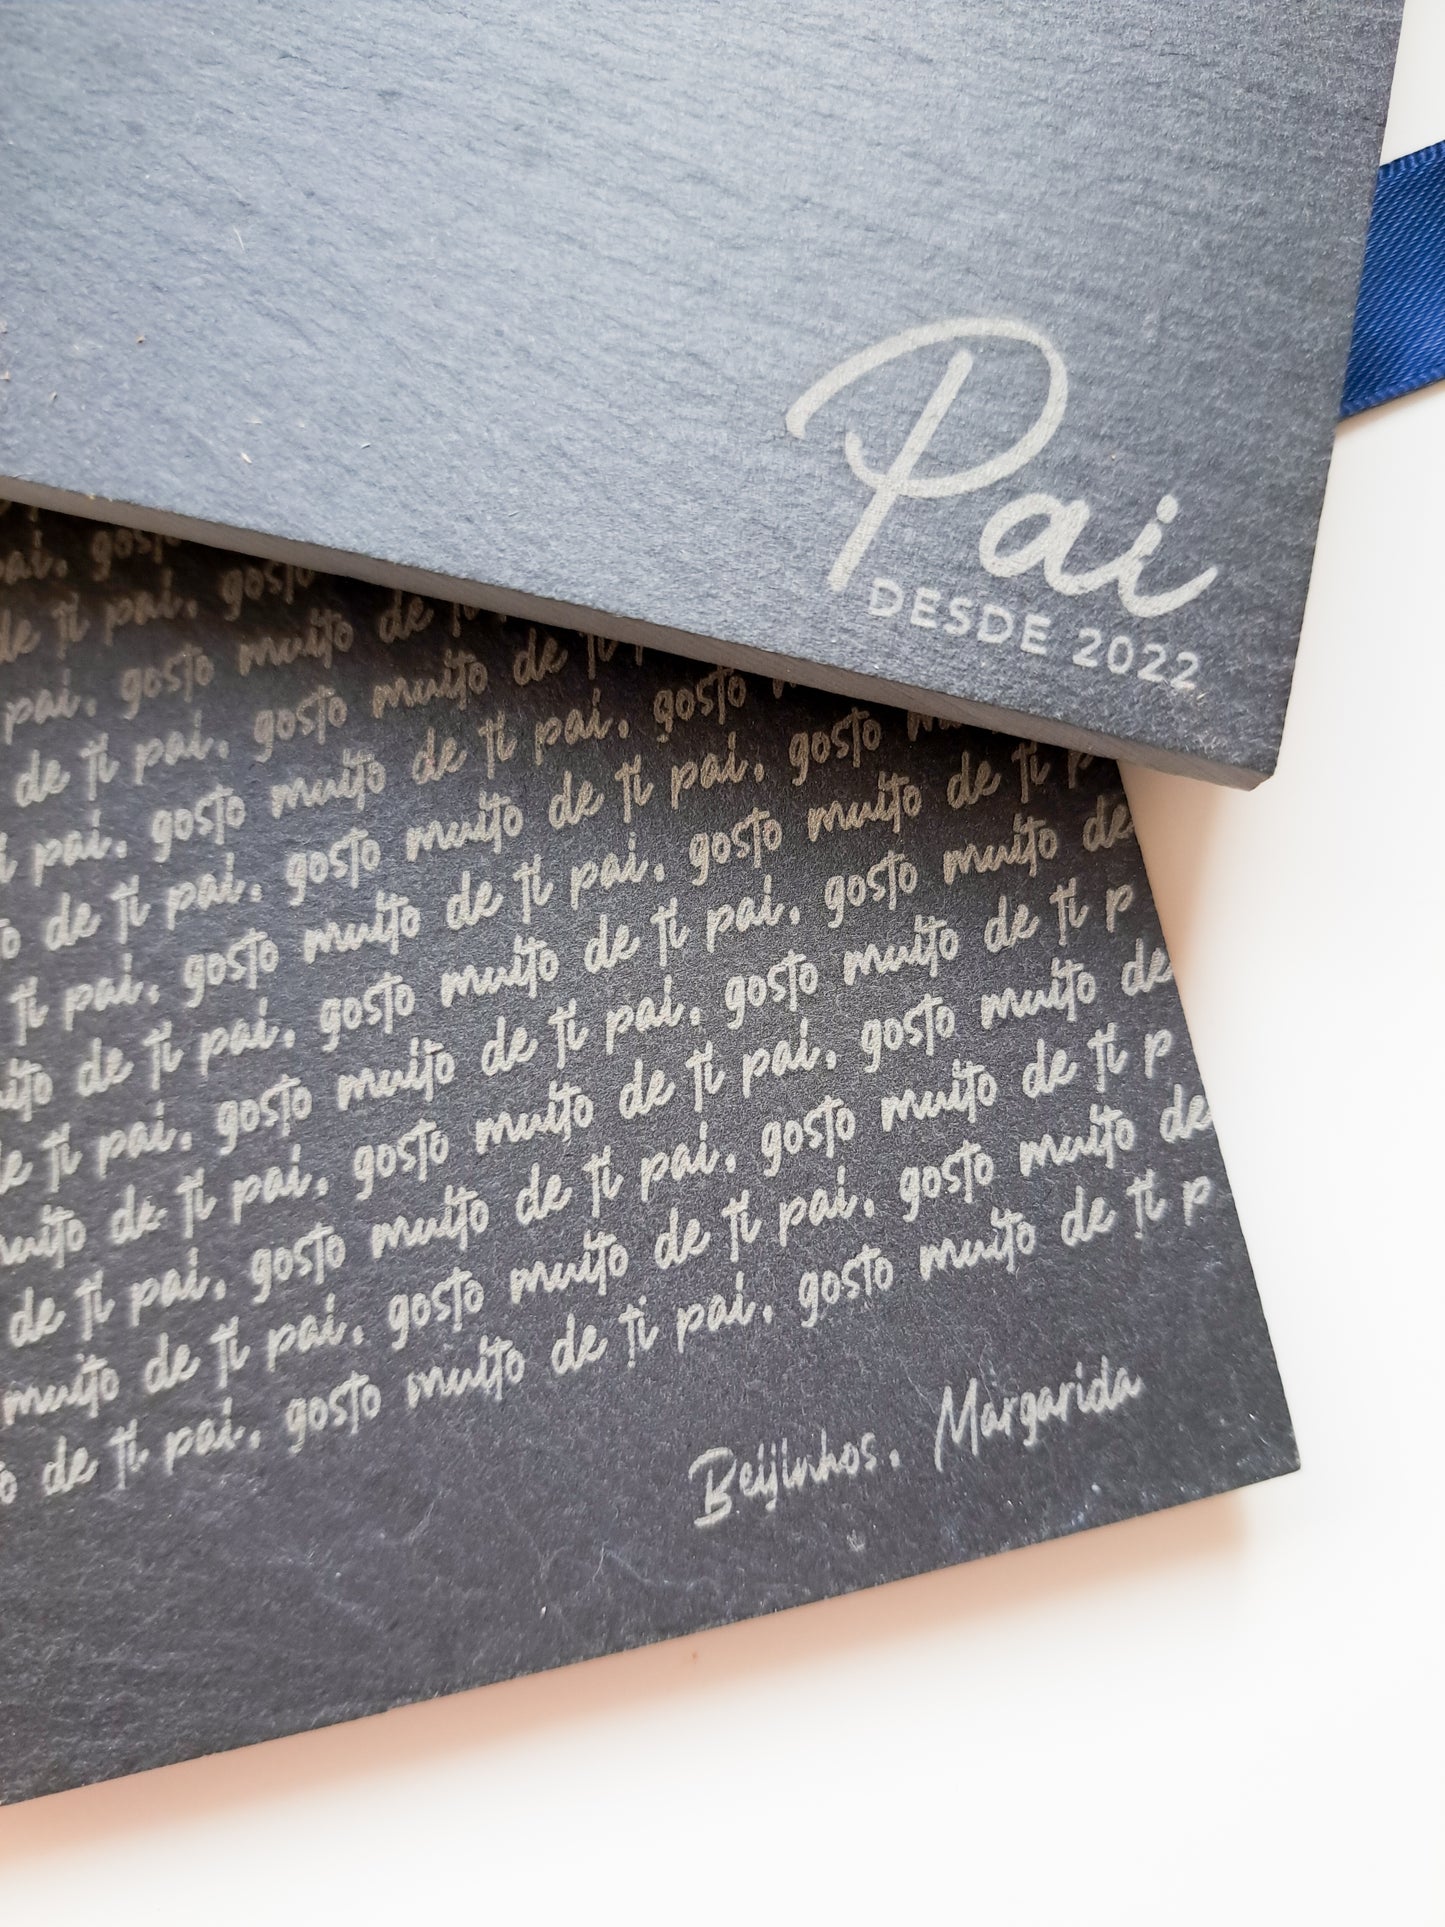 Pai
DESDE 2022
pai, gosto
de ti pai, gosto muito de
pai, gosto muito de ti
de ti pai, gosto muito de ti pai, gosto
pai, gosto muito de ti pai, gosto
de ti pai, gosto muito de ti pai, gosto muito de ti
ti pai, gosto muito de ti pai, gosto muito de
muito de ti pai, gosto muito de ti pai, gosto muito de ti p
de ti pai, gosto muito de ti pai, gosto muito de
muito de ti pai, gosto muito de ti pai, gosto muito de ti p
de ti pai, gosto muito de ti pai, gosto muito de
muito de ti pai, gosto muito de ti pai, gosto muito de ti p
de ti pai, gosto muito de ti pai, gosto muito de ti p
Beijinhos, Margarida